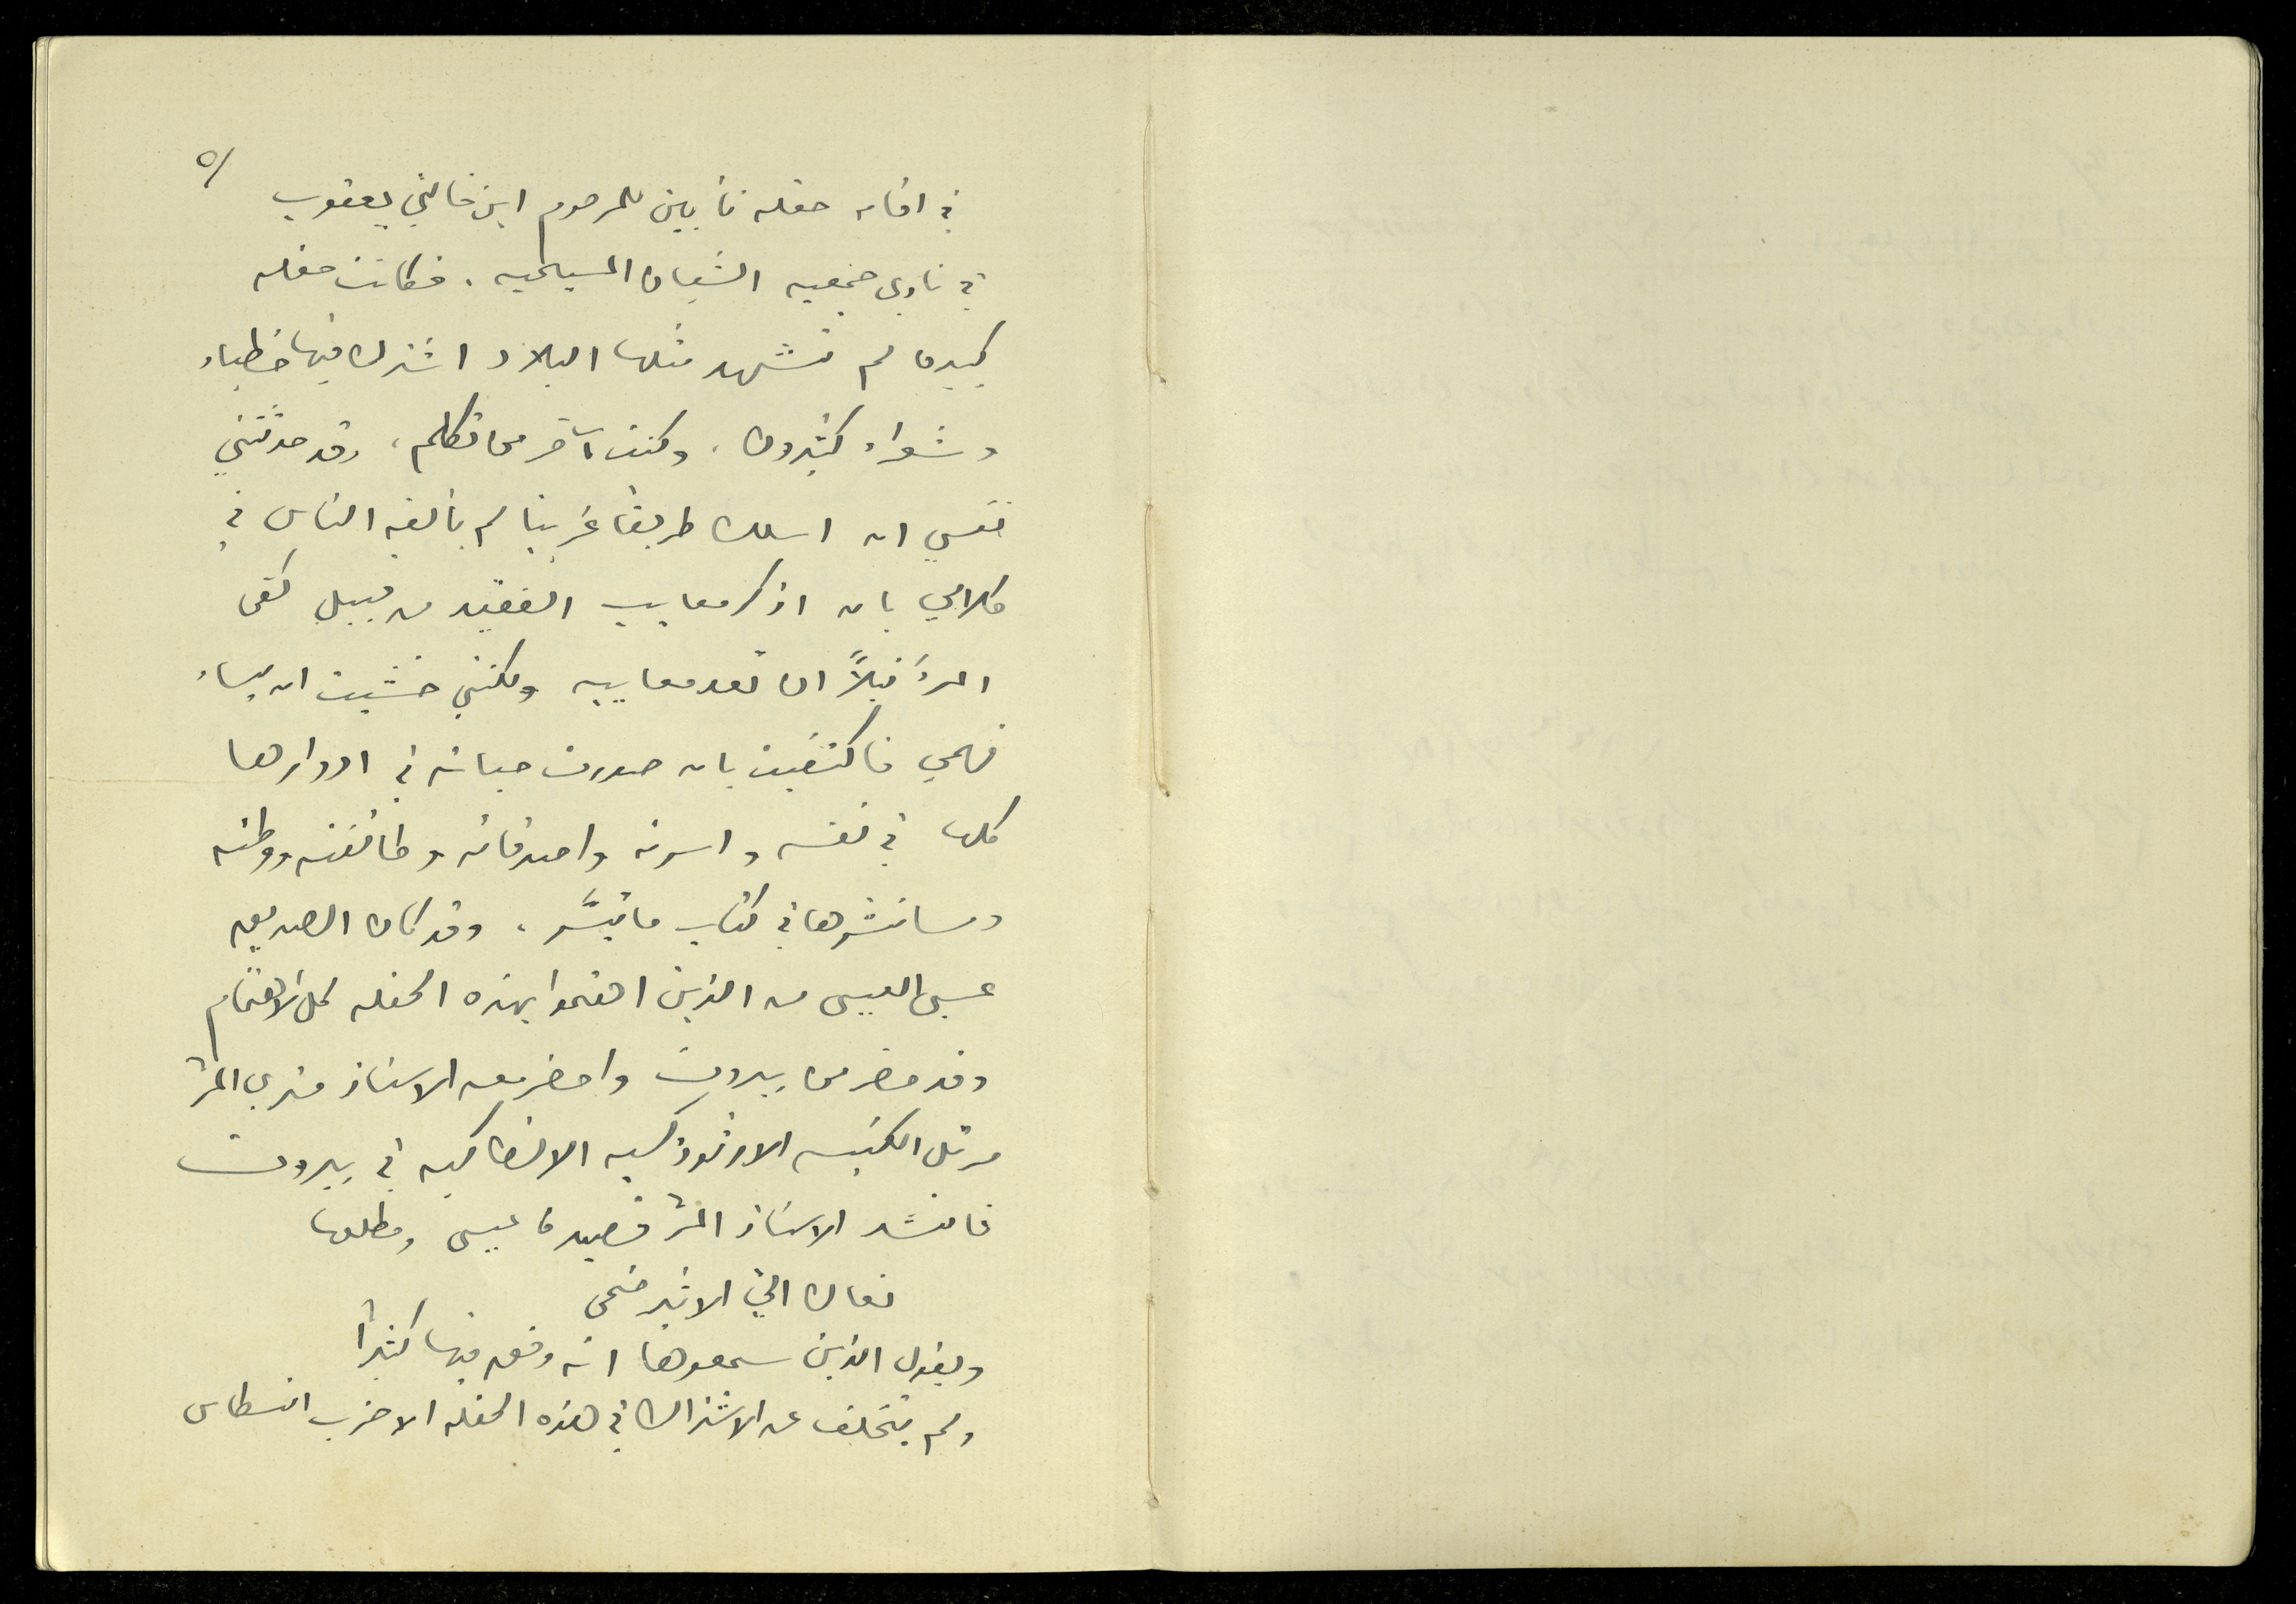 ٥/
في اقامة حفلة تأبين للمرحوم ابن خالتي يعقوب
في نادي جمعية الشبان المسيحية . فكانت حفلة
كبيرة لم تشهد مثلها البلاد اشترك فيها خطباء
وشعراء كثيرون . وكنت آخر من تكلم ، وقد حدثتني
نفسي ان اسلك طريقا غريبا لم يألفه الناس في
كلامي بان اذكر معايب الفقيد من قبيل كفى
المرءَ نبلاً ان تعد معايبه ولكنني خشيت ان يساء
فهمي فاكتفيت بان صورت حياته في ادوارها
كلها في نفسه واسرته واصدقائه وطائفته ووطنه
وسانشرها في كتاب ما تيسَّر ، وقد كان الصديق
عيسى العيسى من الذين اهتموا بهذه الحفلة كل الاهتمام
وقد حضر من بيروت واحضر معه الاستاذ متري المر
مرتل الكنيسة الارثوذكسية الانطاكية في بيروت
فانشد الاستاذ المر قصيدة عيسى ومطلعها
نعاك اليّ الاثير ضحى
ويقول الذين سمعوها انه وفق فيها كثيراً
ولم يتخلف عن الاشتراك في هذه الحفلة الا حزب انسطاس